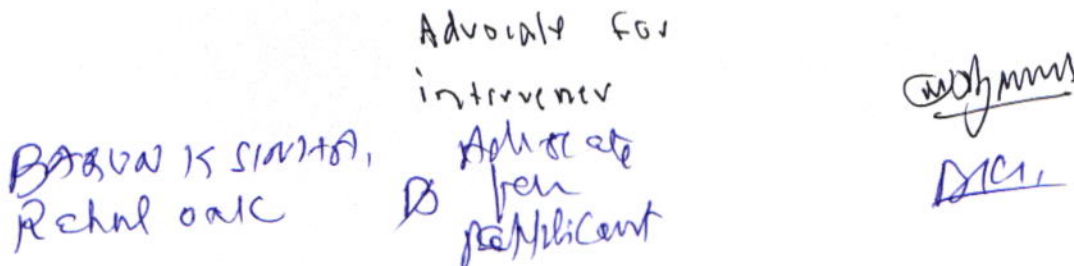 Advocate for
intervener
BARUN K SINHA,
Rahul oak
Advocate
for
applicant